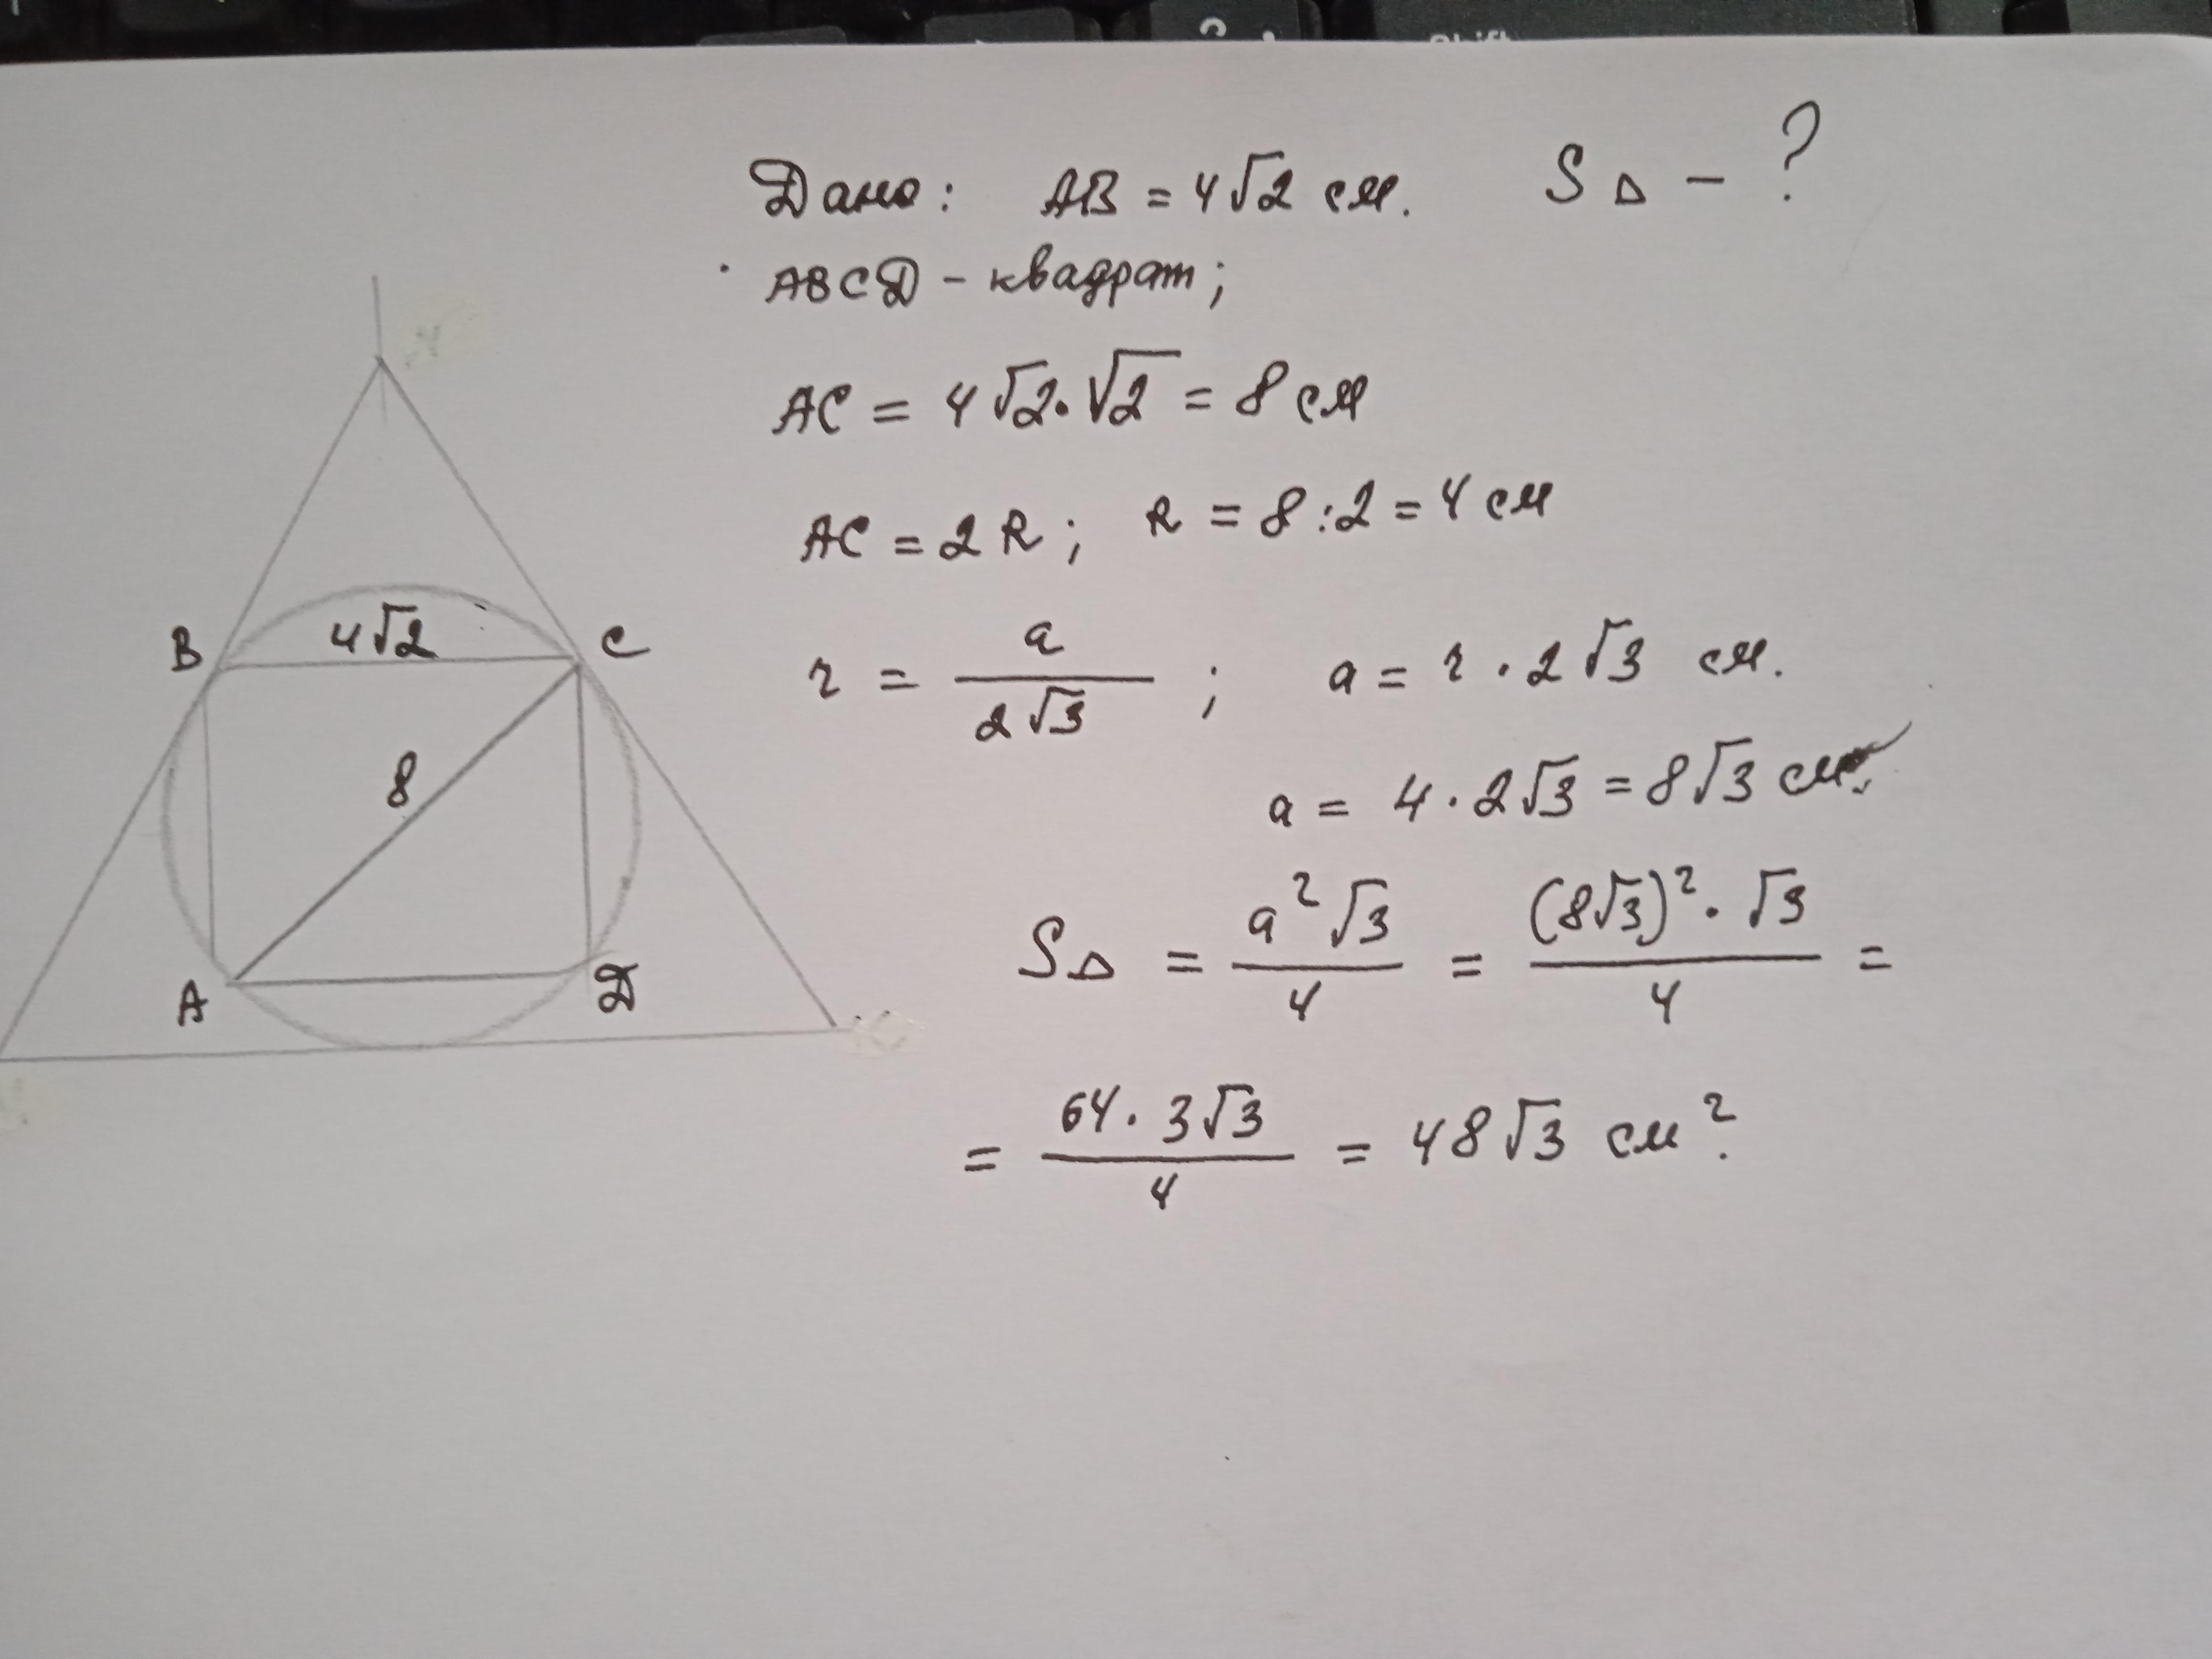 Дано: AB = 4√2 см. S△ - ?
ABCD - квадрат;
AC = 4√2·√2 = 8 см
AC = 2R; R = 8:2 = 4 см
r = a / 2√3 ; a = r · 2√3 см.
a = 4 · 2√3 = 8√3 см.
S△ = a²√3 / 4 = (8√3)² · √3 / 4 =
= 64 · 3√3 / 4 = 48√3 см².
B 4√2 C
8
A D